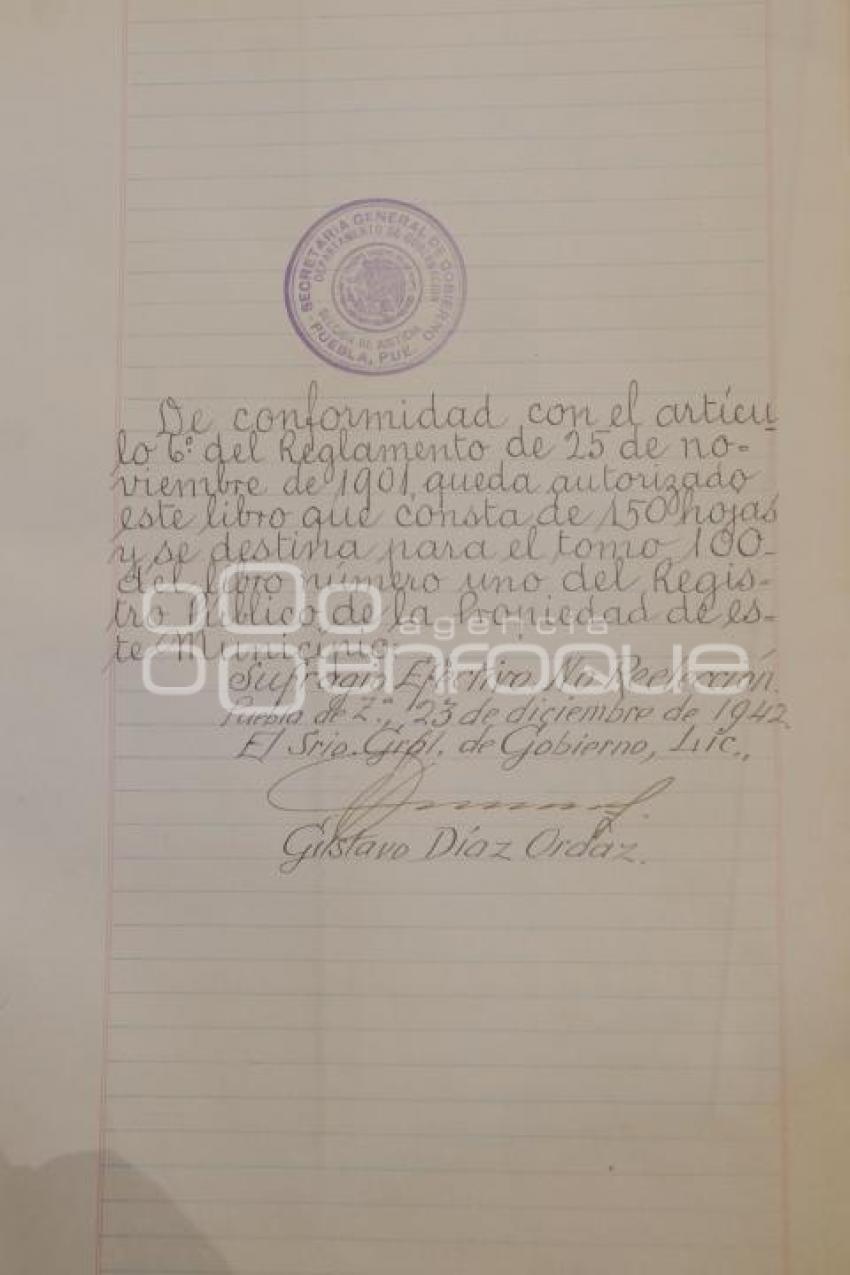 SECRETARIA GENERAL DE GOBIERNO
DEPARTAMENTO DE GOBERNACION
SECCION DE JUSTICIA
PUEBLA, PUE.
De conformidad con el artícu
lo 6º del Reglamento de 25 de no-
viembre de 1901, queda autorizado
este libro que consta de 150 hojas
y se destina para el tomo 100-
del libro número uno del Regis-
tro Público de la Propiedad de es-
te Municipio.
agencia
enfoque
Sufragio Efectivo. No Reelección.
Puebla de Z., 23 de diciembre de 1942.
El Srio. Gral. de Gobierno, Lic.,
Gustavo Díaz Ordaz.